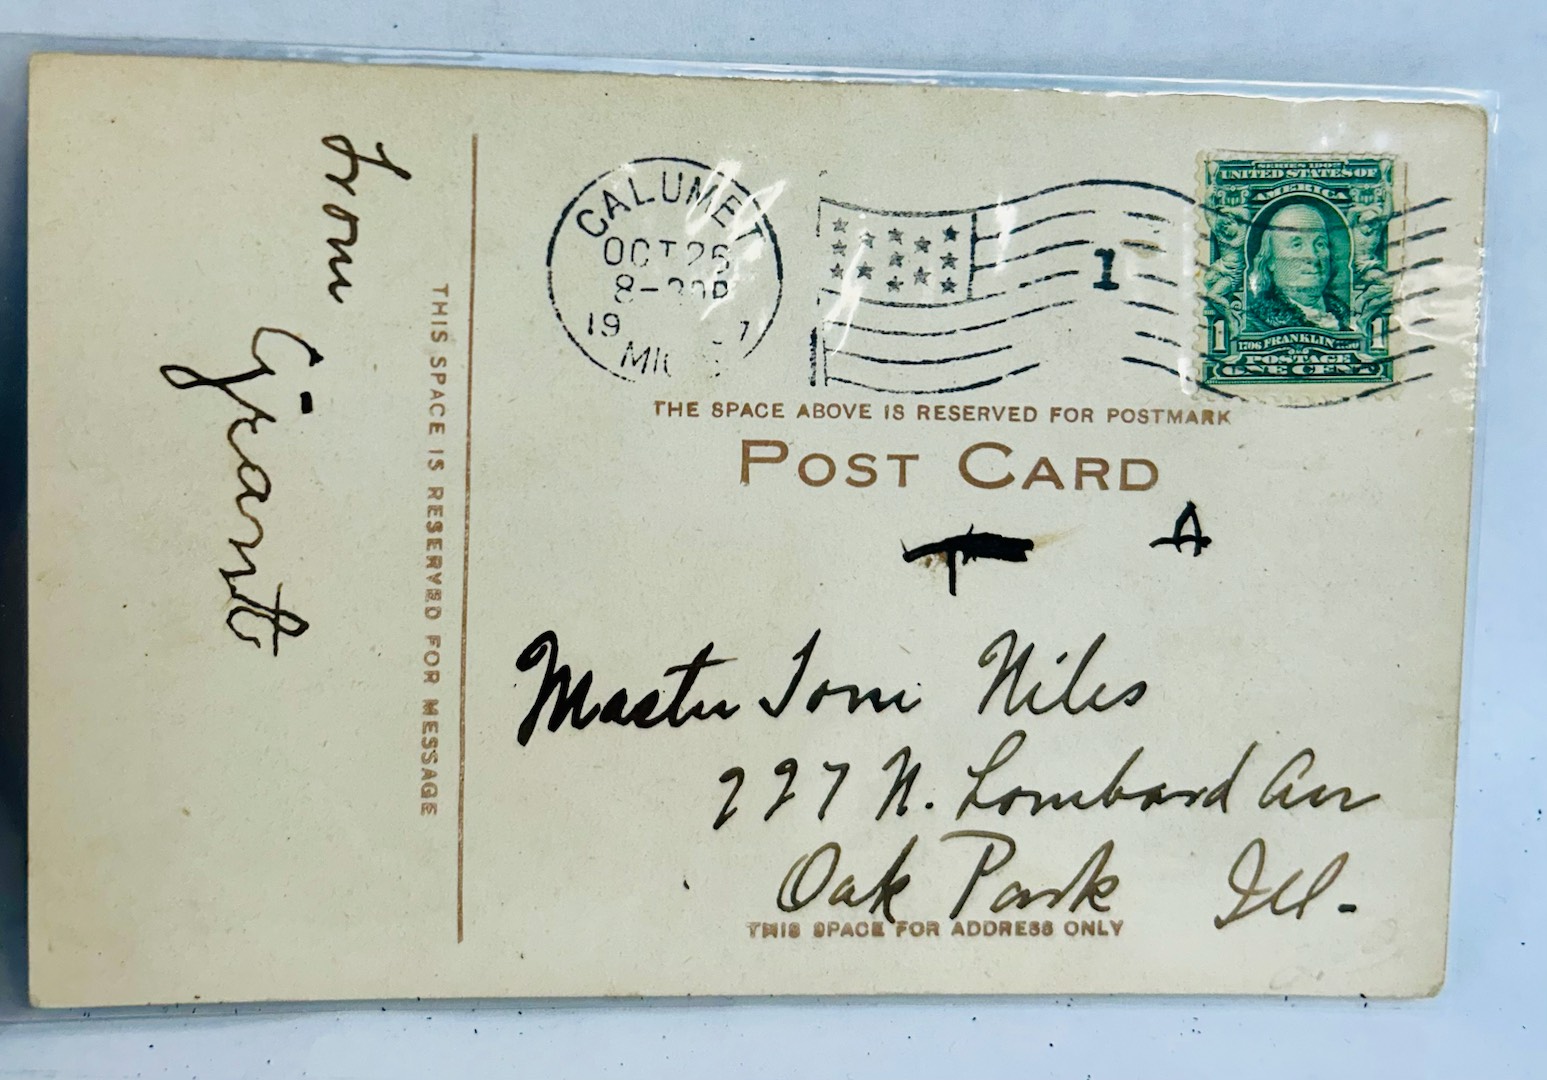 From Grant
THIS SPACE IS RESERVED FOR MESSAGE
CALUMET
OCT 26
8-30P
19 7
MIC
1
SERIES 1902
UNITED STATES OF
AMERICA
1 1
1706 FRANKLIN
POSTAGE
ONE CENT
THE SPACE ABOVE IS RESERVED FOR POSTMARK
POST CARD
A
Master Tom Niles
227 N. Lombard Av
Oak Park Ill.
THIS SPACE FOR ADDRESS ONLY